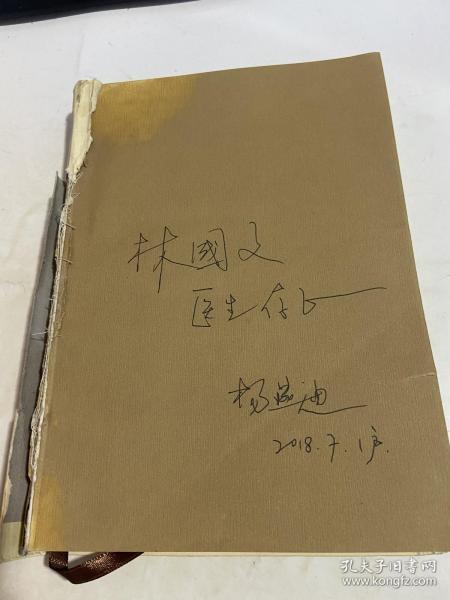 林國文
医生存正
杨燕迪
2018.7.1沪.
孔夫子旧书网
www.kongfz.com